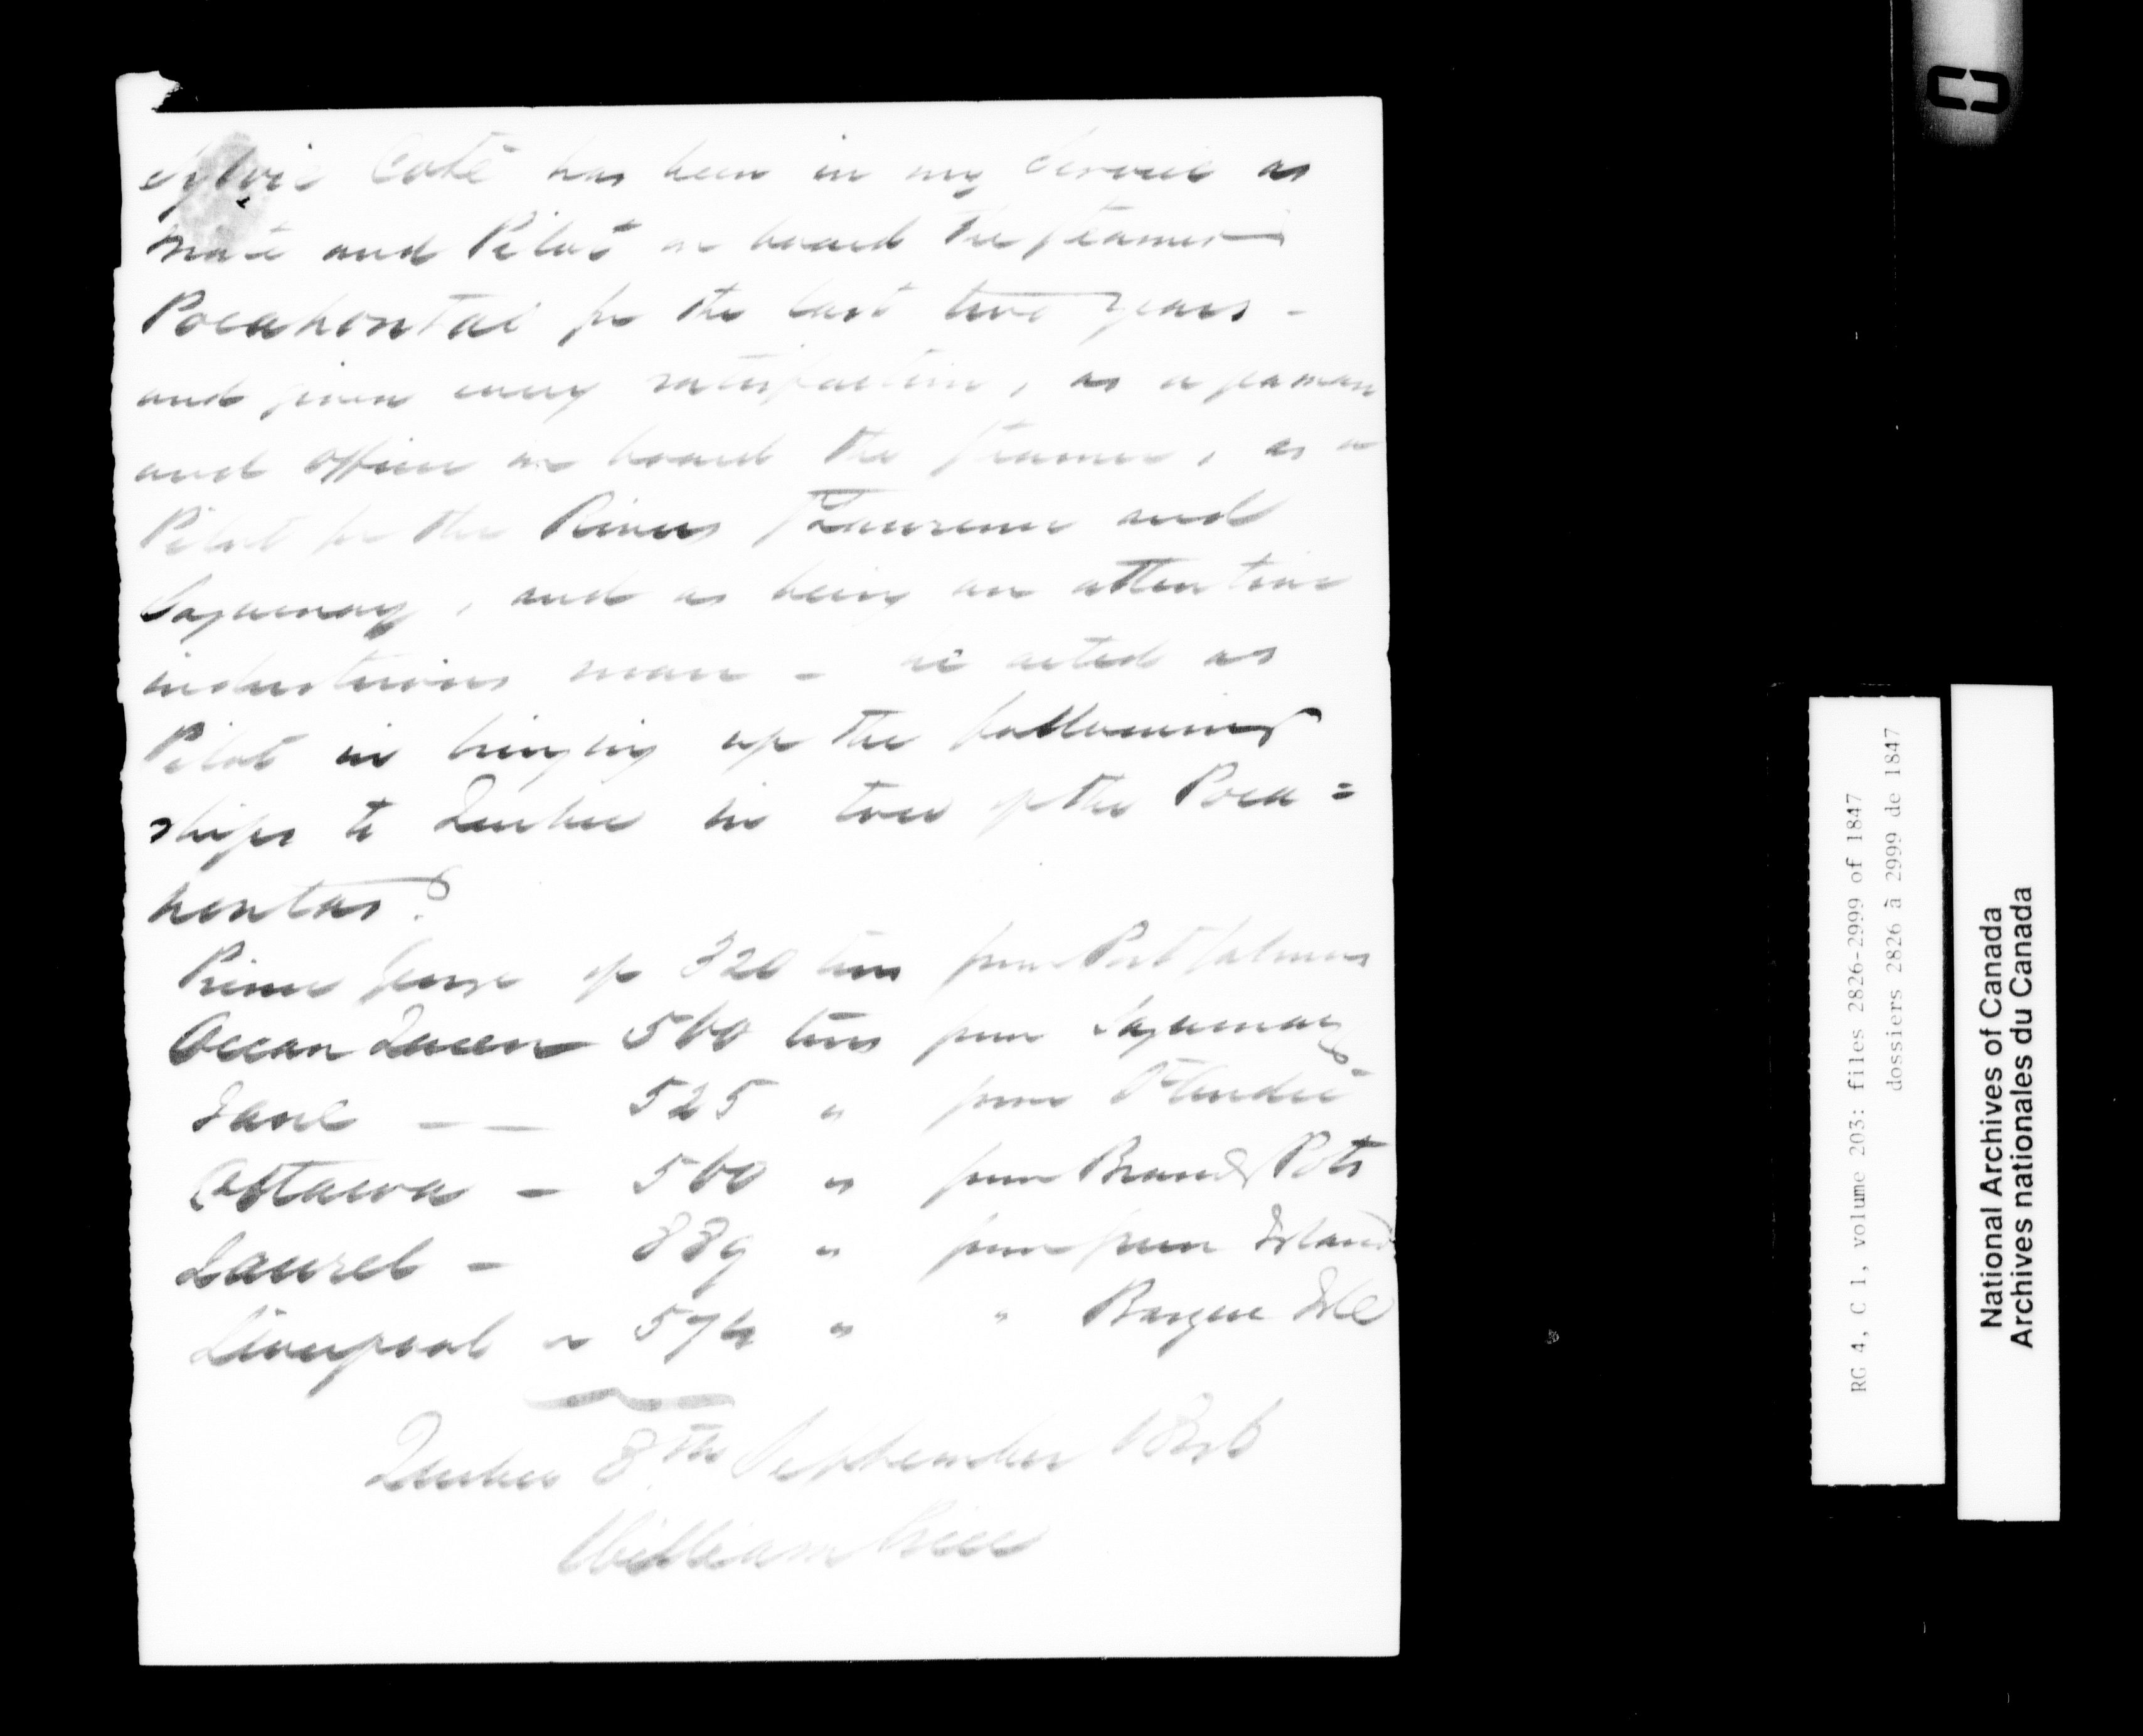 Côté has been in my service as
mate and Pilot on board the steamer
Pocahontas for the last two years -
and given every satisfaction, as a seaman
and officer on board the steamer, as a
Pilot for the Rivers St Lawrence and
Saguenay, and as being an attentive
industrious man - he acted as
Pilot in bringing up the following
ships to Quebec in tow of the Poca=
hontas
Prince George of 320 tons from Port
Ocean Queen 560 tons from Saguenay
Jane — — 525 " from St André
Ottawa - 560 " from Brandy Pots
Laurel - 889 " from Green Island
Liverpool " 574 " " Basque Isle
Quebec 8th September 1846
William Price
RG 4, C 1, volume 203: files 2826-2999 of 1847
dossiers 2826 à 2999 de 1847
National Archives of Canada
Archives nationales du Canada